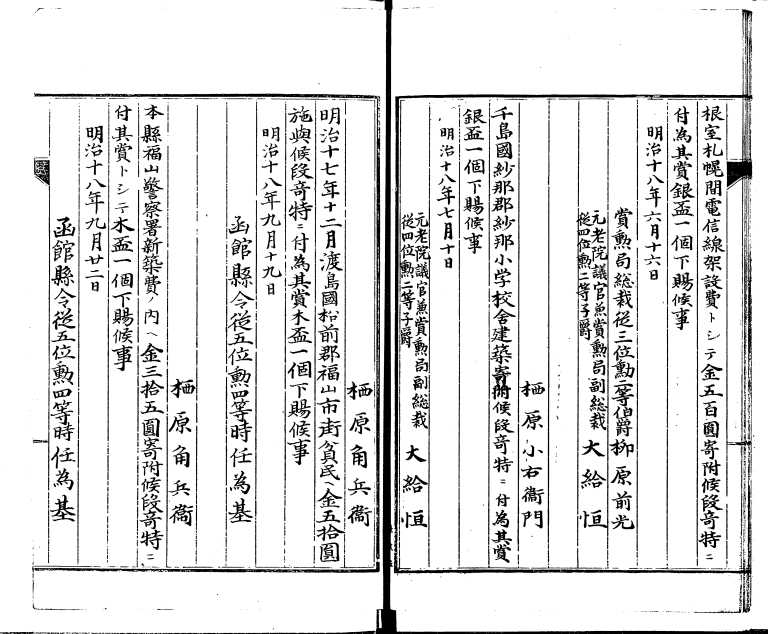 根室札幌間電信線架設費トシテ金五百圓寄附候段竒特ニ
付為其賞銀盃一個下賜候事
明治十八年六月十六日
賞勲局総裁従三位勲二等伯爵柳原前光
元老院議官兼賞勲局副総裁
従四位勲二等子爵
大給恒
栖原小右衞門
千島國紗那郡紗那小学校舎建築寄附候段竒特ニ付為其賞
銀盃一個下賜候事
明治十八年七月十日
元老院議官兼賞勲局副総裁
従四位勲二等子爵
大給恒
栖原角兵衞
明治十七年十二月渡島國松前郡福山市街貧民ヘ金五拾圓
施與候段竒特ニ付為其賞木盃一個下賜候事
明治十八年九月十九日
函館縣令従五位勲四等時任為基
栖原角兵衞
本縣福山警察署新築費ノ内ヘ金三拾五圓寄附候段竒特ニ
付其賞トシテ木盃一個下賜候事
明治十八年九月廿二日
函館縣令従五位勲四等時任為基